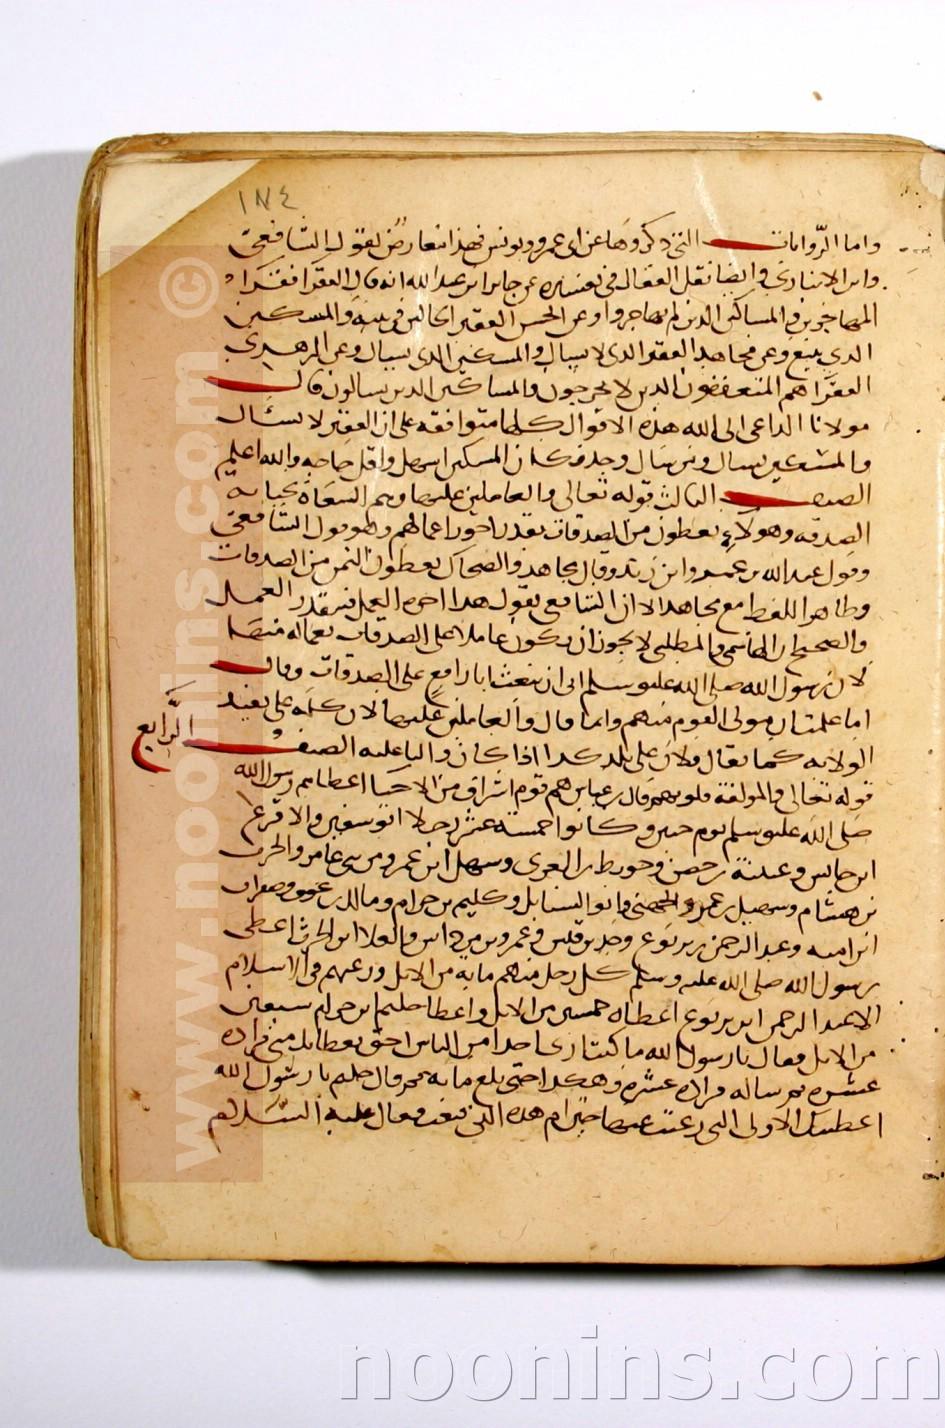 ١٨٤
واما الروايات التي ذكروها عن ابي عمرو ويونس فهذا متعارض بقول الشافعي
وابن الانباري وايضا نقل القفال في تفسيره عن جابر ابن عبد الله انه قال الفقرا فقرا
المهاجرين والمساكين الذين لم يهاجروا وعن الحسن الفقير الجالس في بيته والمسكين
الذي يتبع وعن مجاهد الفقير الذي لا يسال والمسكين الذي يسال وعن الزهري
الفقرا هم المتعففون الذين لا يخرجون والمساكين الذين يسالون قال
مولانا الداعي الى الله هذه الاقوال كلها متوافقه على ان الفقير لا يسئال
والمسكين يسال ومن سال وجد فكان المسكين اسهل واقل حاجه والله اعلم
الصنف الثالث قوله تعالى والعاملين عليها وهم السعاة لجباية
الصدقه وهولاء يعطون من الصدقات بقدر اجور اعمالهم وهو قول الشافعي
وقول عبد الله بن عمر وابن زيد وقال مجاهد والضحاك يعطون الثمن من الصدقات
وظاهر اللفظ مع مجاهد الا ان الشافعي يقول هذا اجره العمل فيتقدر العمل
والصحيح ان الهاشمي والمطلبي لا يجوز ان يكون عاملا على الصدقات
لان رسول الله صلى الله عليه وسلم ابى ان يبعث ابا رافع على الصدقات وقال
اما علمت ان مولى القوم منهم وانما قال والعاملين عليها لان كلمه على تفيد
الولايه كما يقال فلان على بلد كذا اذا كان واليا عليه الصنف الرابع
قوله تعالى والمولفة قلوبهم قال بن عباس هم قوم اشراف من الاحيا اعطاهم رسول الله
صلى الله عليه وسلم يوم حنين وكانوا خمسة عشر رجلا ابو سفين والاقرع
ابن حابس وعيينة بن حصن وحويطب بن العزى وسهل ابن عمرو من بني عامر والحرث
بن هشام وسهيل بن عمرو الجهني وابو السنابل وحكيم بن حزام ومالك بن عوف وصفوان
ابن اميه وعبد الرحمن بن يربوع وجد بن قيس وعمرو بن مرداس والعلا ابن الحرث اعطى
رسول الله صلى الله عليه وسلم كل رجل منهم مايه من الابل ورغبهم في الاسلام
الا عبد الرحمن ابن يربوع اعطاه خمسين من الابل واعطا حكيم ابن حزام سبعين
من الابل فقال يا رسول الله ما كنت ارى احدا من الناس احق بعطايك مني فزاده
عشره ثم ساله فزاده عشره وهكذا حتى بلغ مايه ثم قال حكيم يا رسول الله
اعطيتك الاولى التي رغبت عنها خير ام هذه التي قنعت فقال عليه السلام
© www.noonins.com
noonins.com